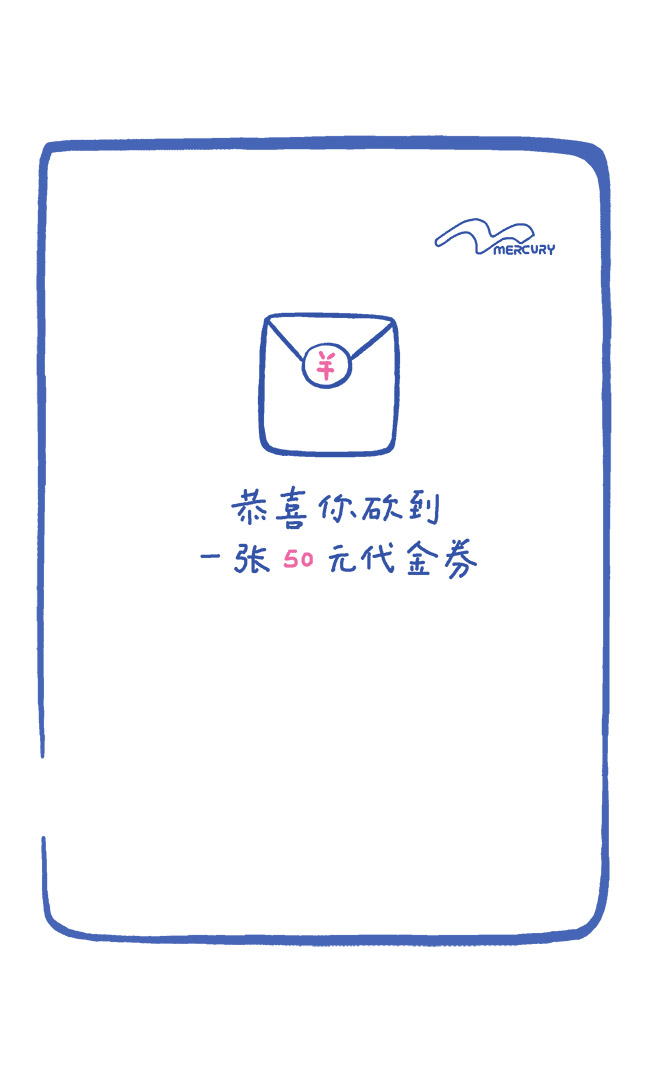 MERCURY
¥
恭喜你砍到
一张 50 元代金券